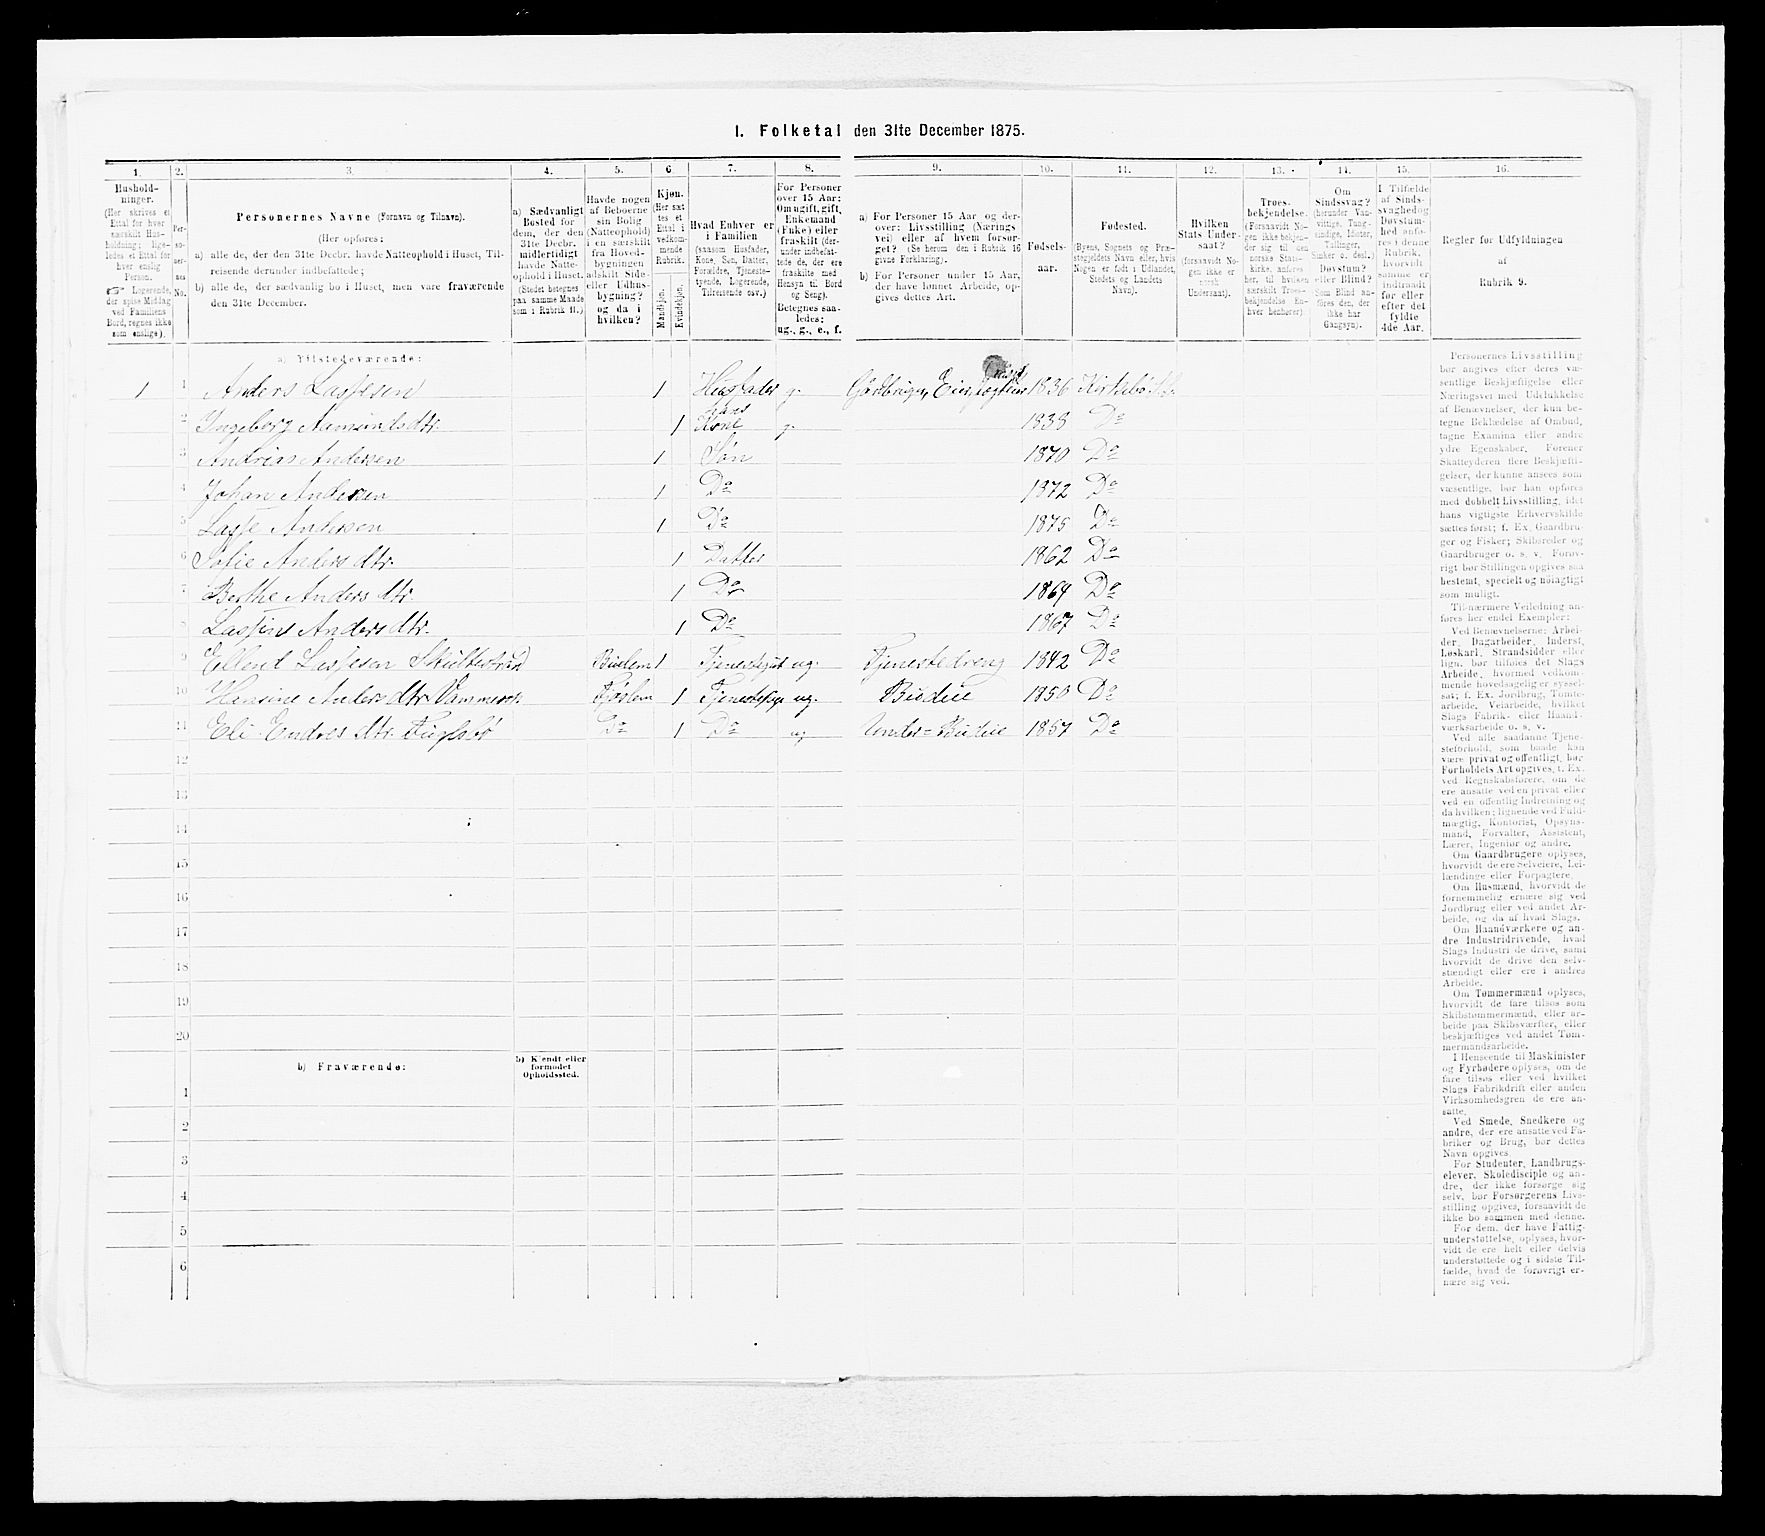 I. Folketal den 31te December 1875.
1. 2. 3. 4. 5. 6. 7. 8. 9. 10. 11. 12. 13. 14. 15. 16.
Hushold-
ninger.
(Her skrives et
Ettal for hver
særskilt Hus-
holdning; lige-
ledes et Ettal for
hver enslig
Person.
☞ Logerende,
der spise Middag
ved Familiens
Bord, regnes ikke
som enslige).
Per-
so-
ner-
nes
No.
Personernes Navne (Fornavn og Tilnavn).
(Her opføres:
a) alle de, der den 31te Decbr. havde Natteophold i Huset, Til-
reisende derunder indbefattede;
b) alle de, der sædvanlig bo i Huset, men vare fraværende
den 31te December.
a) Sædvanligt
Bosted for
dem, der den
31te Decbr.
midlertidigt
havde Natte-
ophold i Huset.
(Stedet betegnes
paa samme Maade
som i Rubrik 11.)
Havde nogen
af Beboerne
sin Bolig
(Natteophold)
i en særskilt
fra Hoved-
bygningen
adskilt Side-
eller Udhus-
bygning?
og da i
hvilken?
Kjøn.
(Her sæt-
tes et
Ettal i
vedkom-
mende
Rubrik.
Mandkjøn.
Kvindekjøn.
Hvad Enhver er
i Familien
(saasom Husfader,
Kone, Søn, Datter,
Forældre, Tjeneste-
tyende, Logerende,
Tilreisende osv.)
For Personer
over 15 Aar:
Om ugift, gift,
Enkemand
(Enke) eller
fraskilt (der-
under indbefat-
tede de, der ere
fraskilte med
Hensyn til Bord
og Seng).
Betegnes saa-
ledes:
ug., g., e., f.
a) For Personer 15 Aar og der-
over: Livsstilling (Nærings-
vei) eller af hvem forsør-
get? (Se herom den i Rubrik 16
givne Forklaring).
b) For Personer under 15 Aar,
der have lønnet Arbeide, op-
gives dettes Art.
Fødsels-
aar.
Fødested.
(Byens, Sognets og Præ-
stegjeldets Navn eller, hvis
Nogen er født i Udlandet,
Stedets og Landets
Navn).
Hvilken
Stats Under-
saat?
(forsaavidt No-
gen ikke er
norsk
Undersaat).
Troes-
bekjendelse.
(Forsaavidt No-
gen ikke bekjen-
der sig til den
norske Stats-
kirke, anføres
her, til hvilken
særskilt Troes-
bekjendelse En-
hver henhører).
Om
Sindssvag?
(herunder Van-
vittige, Tung-
sindige, Idioter,
Tullinger,
Sinker o. desl.)
Døvstum?
eller Blind?
Som Blind an-
føres den, der
ikke har
Gangsyn).
I Tilfælde
af Sinds-
svaghed og
Døvstum-
hed anfø-
res i denne
Rubrik,
hvorvidt
samme er
indtraadt
før eller
efter det
fyldte
4de Aar.
Regler for Udfyldningen
af
Rubrik 9.
a) Tilstedeværende:
1 1 Anders Lassesen 1 Husfader g. Gårdbruger, 1836
2 Ingeborg Aamundsdtr. 1 hans Kone g. 1838 Do
3 Andrias Andersen 1 Søn 1870 Do
4 Johan Andersen 1 Do 1872 Do
5 Lasse Andersen 1 Do 1875 Do
6 Sofie Andersdtr. 1 Datter 1862 Do
7 Berthe Andersdtr. 1 Do 1869 Do
8 Lassine Andersdtr. 1 Do 1867 Do
9 Ellend Lassesen 1 ug. Tjenestedreng 1842 Do
10 Hansine Andersdtr. 1 ug. Budeie 1850 Do
11 Eli Endresdtr. Do 1 Do ug Under-Budeie 1857 Do
12
13
14
15
16
17
18
19
20
b) Fraværende:
b) Kjendt eller
formodet
Opholdssted.
1
2
3
4
5
6
Personernes Livsstilling
bør angives efter deres væ-
sentlige Beskjæftigelse eller
Næringsvei med Udelukkelse
af Benævnelser, der kun be-
tegne Beklædelse af Ombud,
tagne Examina eller andre
ydre Egenskaber. Forener
Skatteyderen flere Beskjæfti-
gelser, der kunne ansees som
væsentlige, bør han opføres
med dobbelt Livsstilling, idet
hans vigtigste Erhvervskilde
sættes først; f. Ex. Gaardbru-
ger og Fisker; Skibsreder og
Gaardbruger o. s. v. Forøv-
rigt bør Stillingen opgives saa
bestemt, specielt og nøiagtigt
som muligt.
Til nærmere Veiledning an-
føres her endel Exempler:
Ved Benævnelserne: Arbei-
der, Dagarbeider, Inderst,
Løskarl, Strandsidder eller
lign. bør tilføies det Slags
Arbeide, hvormed vedkom-
mende hovedsagelig er syssel-
sat; f. Ex. Jordbrug, Tomte-
arbeide, Veiarbeide, hvilket
Slags Fabrik- eller Haand-
værksarbeide o. s. v.
Ved alle saadanne Tjene-
steforhold, som baade kan
være privat og offentligt, bør
Forholdets Art opgives, t. Ex.
ved Regnskabsførere, om de
ere ansatte ved en privat eller
ved en offentlig Indretning og
da hvilken; lignende ved Fuld-
mægtig, Kontorist, Opsyns-
mand, Forvalter, Assistent,
Lærer, Ingeniør og andre.
Om Gaardbrugere oplyses,
hvorvidt de ere Selveiere, Lei-
lændinge eller Forpagtere.
Om Husmænd, hvorvidt de
fornemmelig ernære sig ved
Jordbrug eller ved andet Ar-
beide, og da af hvad Slags.
Om Haandværkere og an-
dre Industridrivende, hvad
Slags Industri de drive, samt
hvorvidt de drive den selv-
stændigt eller ere i andres
Arbeide.
Om Tømmermænd oplyses,
hvorvidt de fare tilsøs som
Skibstømmermænd, eller ar-
beide paa Skibsværfter, eller
beskjæftiges ved andet Tøm-
mermandsarbeide.
I Henseende til Maskinister
og Fyrbødere oplyses, om de
fare tilsøs eller ved hvilket
Slags Fabrikdrift eller anden
Virksomhedsgren de ere an-
satte.
Ved Smede, Snedkere og
andre, der ere ansatte ved Fa-
briker og Brug, bør dettes
Navn opgives.
For Studenter, Landbrugs-
elever, Skoledisciple og an-
dre, der ikke forsørge sig
selv, bør Forsørgerens Livs-
stilling opgives, forsaavidt de
ikke bo sammen med denne.
For dem, der have Fattig-
understøttelse, oplyses, hvor-
vidt de ere helt eller delvis
understøttede og i sidste Til-
fælde, hvad de forøvrigt er-
nære sig ved.